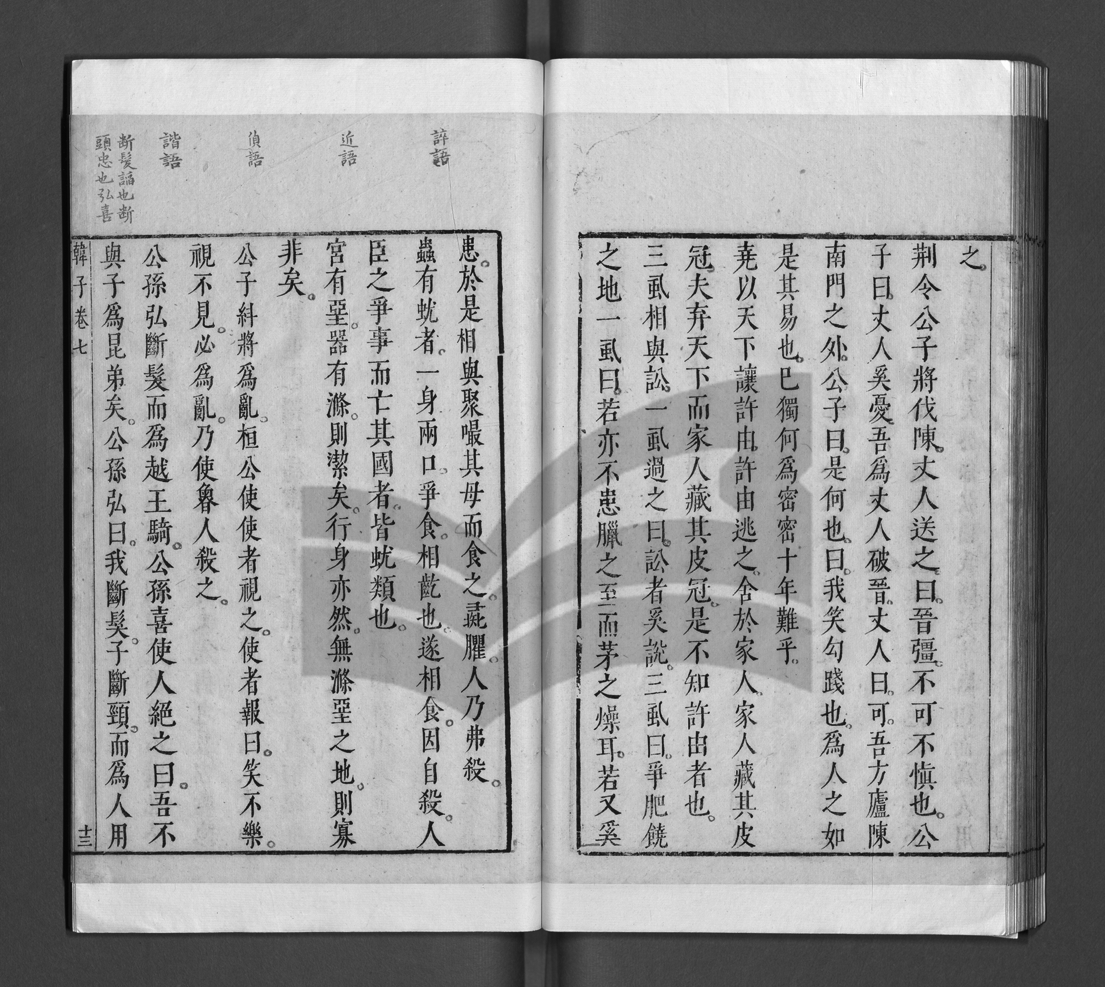 之。
荆令公子將伐陳。丈人送之曰。晉彊。不可不慎也。公
子曰。丈人奚憂。吾爲丈人破晉。丈人曰。可。吾方廬陳
南門之外。公子曰。是何也。曰。我笑勾踐也。爲人之如
是其易也。巳獨何爲密密十年難乎。
堯以天下讓許由。許由逃之。舍於家人。家人藏其皮
冠。夫弃天下而家人藏其皮冠。是不知許由者也。
三虱相與訟。一虱過之曰。訟者奚說。三虱曰。爭肥饒
之地一虱曰。若亦不患臘之至而茅之燥耳。若又奚
患。於是相與聚嘬其母而食之。彘臞。人乃弗殺。
蟲有蚘者。一身兩口。爭食。相齕也。遂相食。因自殺。人
臣之爭事而亡其國者。皆蚘類也。
宮有堊。器有滌。則潔矣。行身亦然。無滌堊之地。則寡
非矣。
公子糾將爲亂。桓公使使者視之。使者報曰。笑不樂。
視不見。必爲亂。乃使魯人殺之。
公孫弘斷髮而爲越王騎。公孫喜使人絕之曰。吾不
與子爲昆弟矣。公孫弘曰。我斷髮。子斷頸。而爲人用
韓子卷七
十三
誶語
近語
偵語
諧語
断髮謟也断
頭忠也弘喜